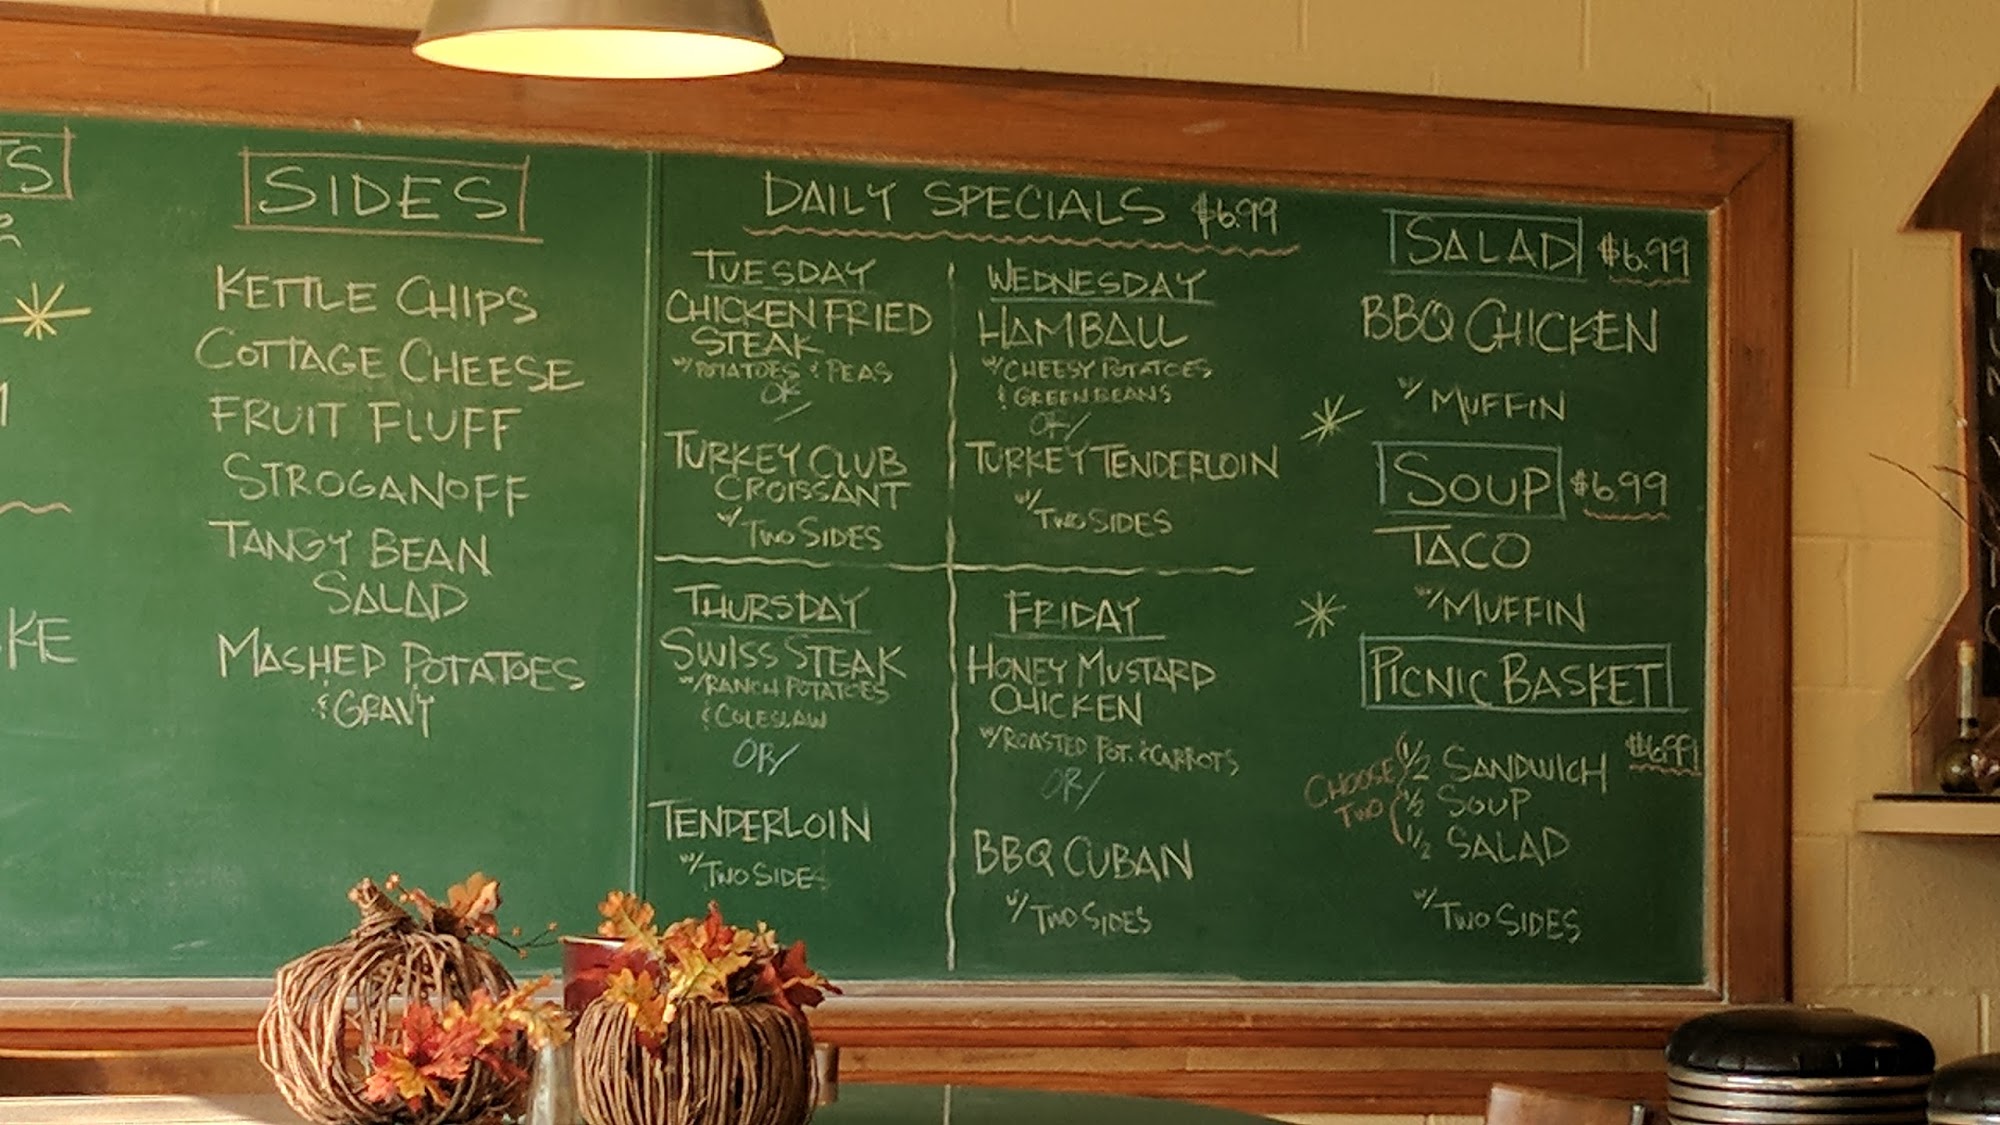 SIDES
KETTLE CHIPS
COTTAGE CHEESE
FRUIT FLUFF
STROGANOFF
TANGY BEAN
SALAD
MASHED POTATOES
& GRAVY
DAILY SPECIALS $6.99
TUESDAY
CHICKEN FRIED
STEAK
W/ POTATOES & PEAS
OR
TURKEY CLUB
CROISSANT
W/ TWO SIDES
WEDNESDAY
HAMBALL
W/ CHEESY POTATOES
& GREEN BEANS
OR/
TURKEY TENDERLOIN
W/ TWO SIDES
THURSDAY
SWISS STEAK
W/ RANCH POTATOES
& COLESLAW
OR/
TENDERLOIN
W/ TWO SIDES
FRIDAY
HONEY MUSTARD
CHICKEN
W/ ROASTED POT. & CARROTS
OR/
BBQ CUBAN
W/ TWO SIDES
SALAD $6.99
BBQ CHICKEN
W/ MUFFIN
SOUP $6.99
TACO
W/ MUFFIN
PICNIC BASKET
$6.99
CHOOSE TWO
1/2 SANDWICH
1/2 SOUP
1/2 SALAD
W/ TWO SIDES